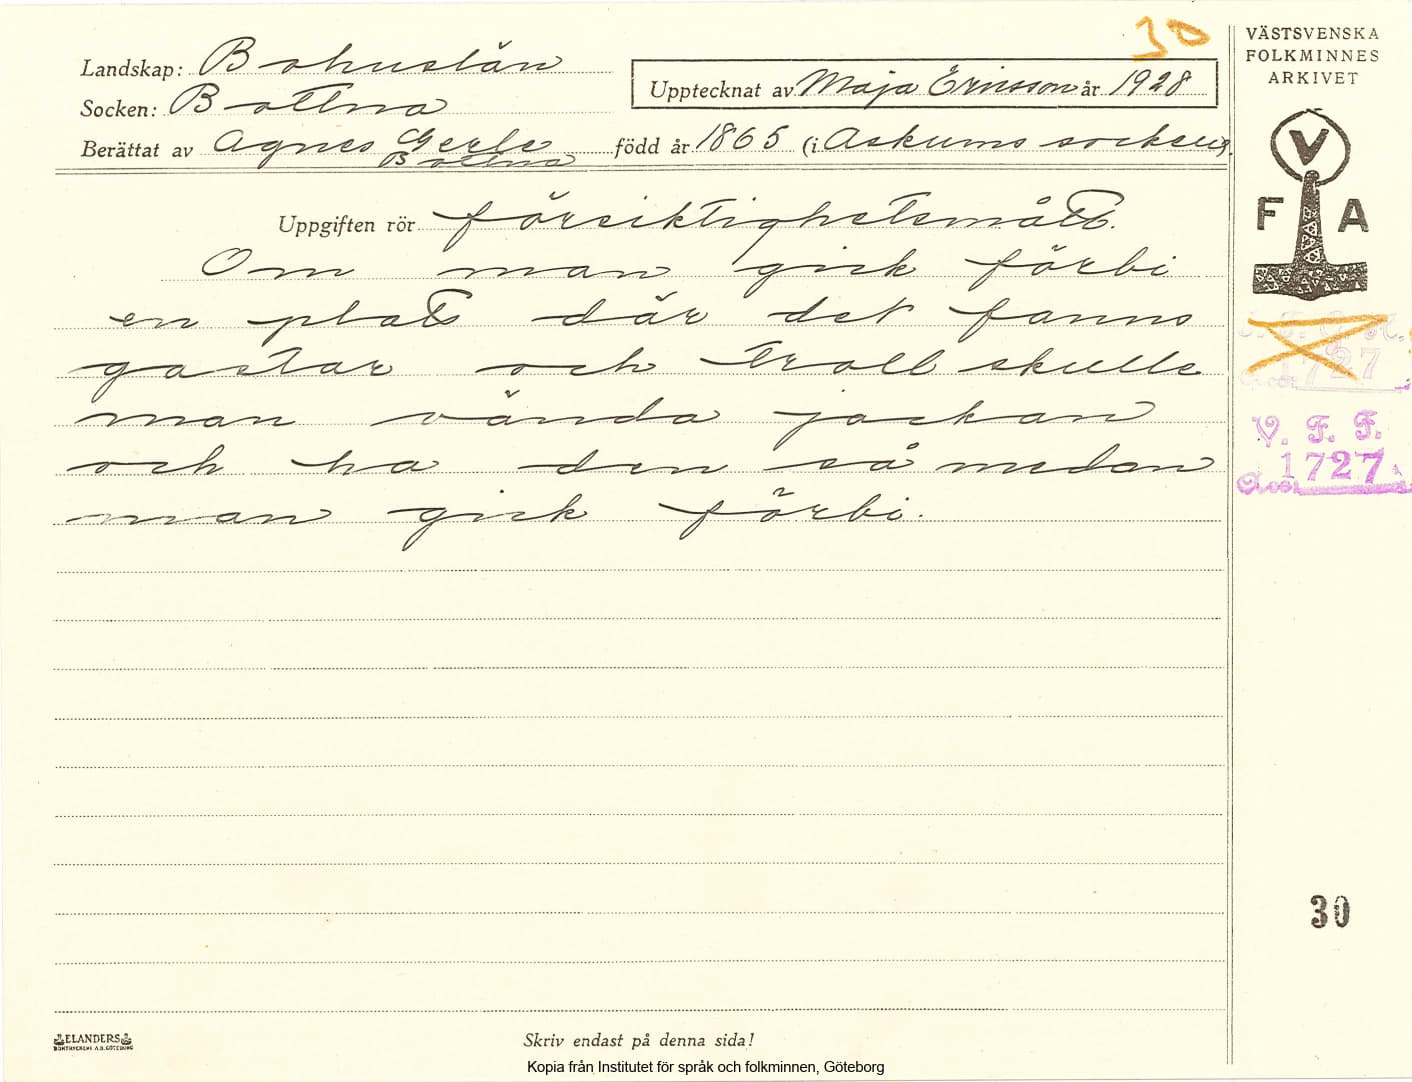 30
VÄSTSVENSKA
FOLKMINNES
ARKIVET
Landskap: Bohuslän
Socken: Bottna
Upptecknat av Maja Ericsson år 1928
Berättat av Agnes Gerle född år 1865 (i Askums socken).
Bottna
V
F A
Uppgiften rör försiktighetsmått.
Om man gick förbi
en plats där det fanns
gastar och troll skulle
man vända jackan
och ha den så medan
man gick förbi.
1727
V. F. F.
Acc. 1727
30
ELANDERS
BOKTRYCKERI A.B. GÖTEBORG
Skriv endast på denna sida!
Kopia från Institutet för språk och folkminnen, Göteborg